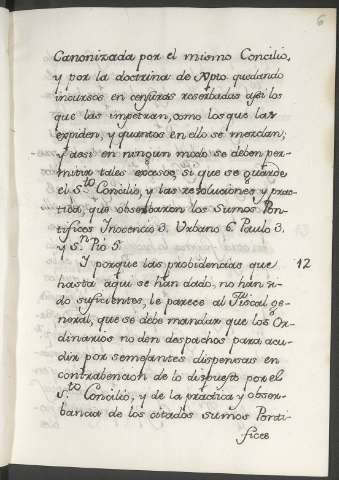 6
Canonizada por el mismo Concilio,
y por la doctrina de Xpto quedando
incursos en censuras reserbadas assi los
que las impetran, como los que las
expiden, y quantos en ello se mezclan;
y assi en ningun modo se deben per-
mitir tales excesos, si que se guarde
el S.to Concilio, y las resoluciones y prac-
tica, que obserbaron los Sumos Pon-
tifices Inocencio 3. Urbano 6. Paulo 3.
y S.n Pio 5.
Y porque las probidencias que 12
hasta aqui se han dado, no han si-
do suficientes, le parece al Fiscal ge-
neral, que se debe mandar que los Or-
dinarios no den despachos para acu-
dir por semejantes dispensas en
contrabencion de lo dispuesto por el
S.to Concilio, y de la practica y obser-
bancia de los citados sumos Ponti-
fices